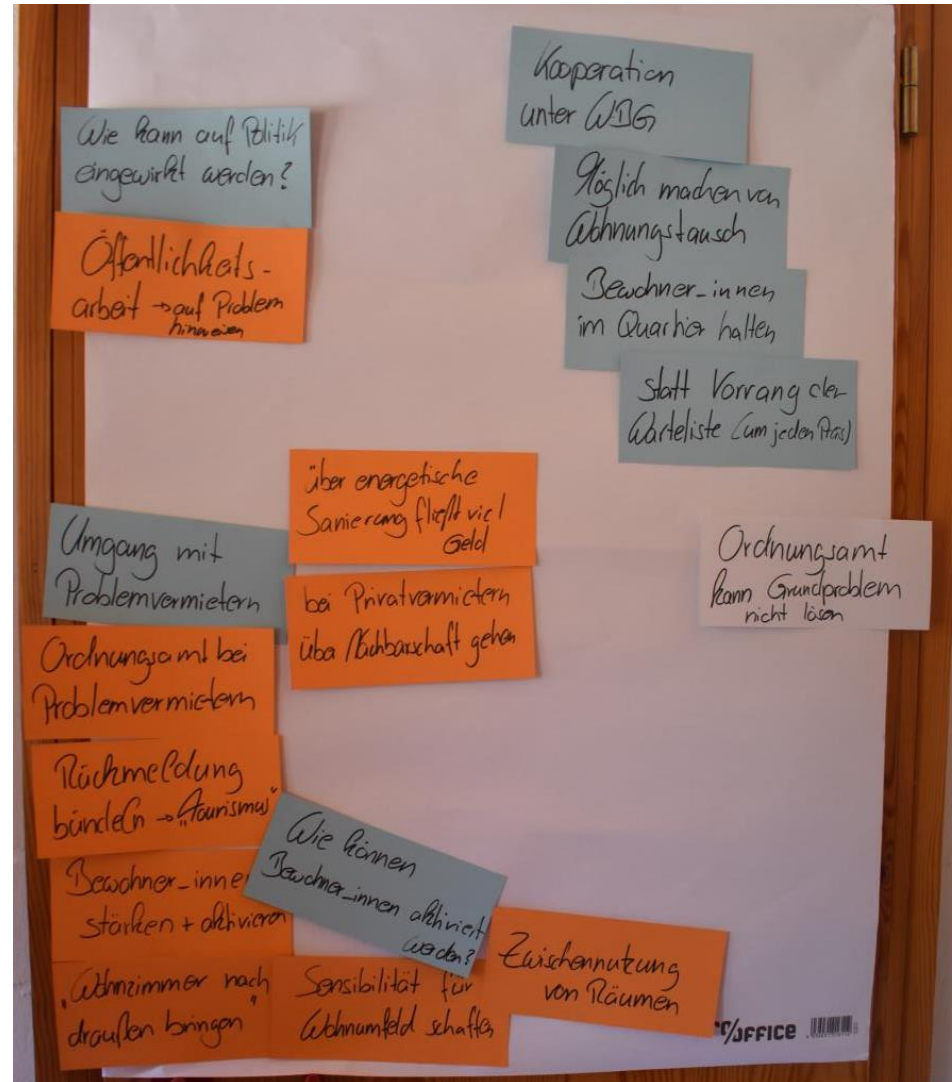 Wie kann auf Politik
eingewirkt werden?
Öffentlichkeits-
arbeit → auf Problem
hinweisen
Kooperation
unter WBG
Möglich machen von
Wohnungstausch
Bewohner_innen
im Quartier halten
statt Vorrang der
Warteliste (um jeden Preis)
über energetische
Sanierung fließt viel
Geld
bei Privatvermietern
über Nachbarschaft gehen
Ordnungsamt
kann Grundproblem
nicht lösen
Umgang mit
Problemvermietern
Ordnungsamt bei
Problemvermietern
Rückmeldung
bündeln → "Tourismus"
Bewohner_innen
stärken + aktivieren
"Wohnzimmer nach
draußen bringen"
Wie können
Bewohner_innen aktiviert
werden?
Sensibilität für
Wohnumfeld schaffen
Zwischennutzung
von Räumen
OFFICE